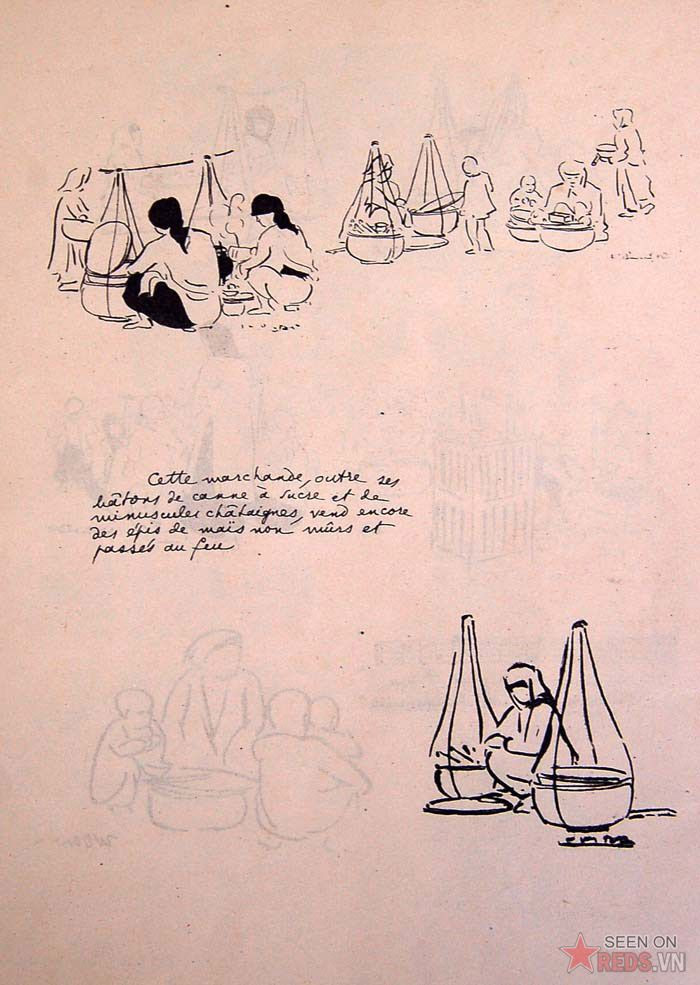 Cette marchande, outre ses
bâtons de canne à sucre et de
minuscules châtaignes, vend encore
des épis de maïs non mûrs et
passés au feu
SEEN ON
REDS.VN